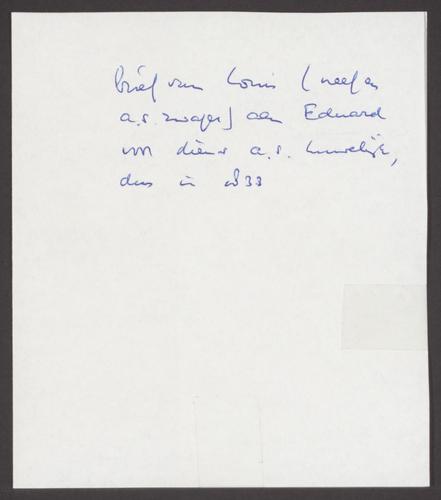 brief van Louis (neef en
a.s. zwager) aan Eduard
von diens a.s. huwelijk,
dus in 1833